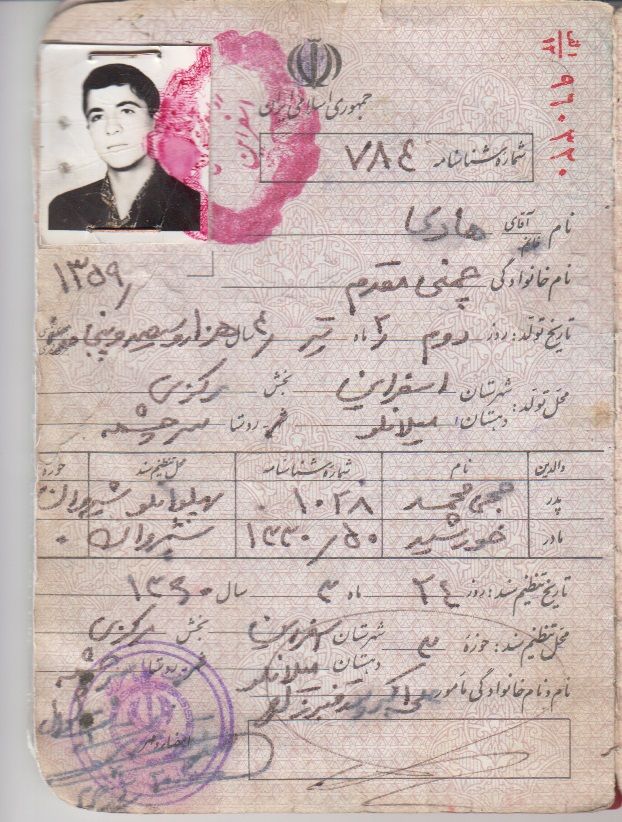 جمهوری اسلامی ایران
الف
۱۲
۹۶۰۲۲۰
اسفراین
شماره شناسنامه ۷۸۴
نام آقای هادی
خانم
نام خانوادگی چمنی مقدم
۱۳۵۹
تاریخ تولد: روز دوم ۲ ماه تیر ۴ سال هزار و سیصد و پنجاه و
محل تولد: شهرستان اسفراین بخش مرکزی
دهستان میلانلو روستا سرچشمه
والدین نام شماره شناسنامه محل تنظیم سند حوزه
پدر ۱۰۲۸ شیروان
مادر خورشید ۱۳۳۰/۵۰ شیروان ۰
تاریخ تنظیم سند: روز ۲۴ ماه ۳ سال ۱۳۶۰
محل تنظیم سند: حوزه ۳ شهرستان اسفراین بخش مرکزی
دهستان میلانلو روستا سرچشمه
نام و نام خانوادگی مأمور
امضاء و مهر